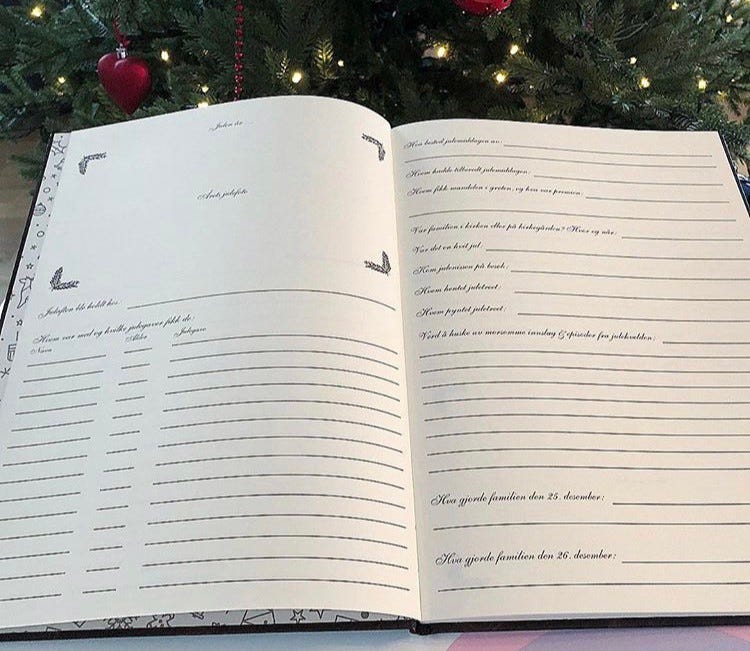 Julen år
Årets julefoto
Julaften ble holdt hos:
Hvem var med og hvilke julegaver fikk de:
Navn Alder Julegave
Hva bestod julemiddagen av:
Hvem hadde tilberedt julemiddagen:
Hvem fikk mandelen i grøten, og hva var premien:
Var familien i kirken eller på kirkegården? Hvor og når:
Var det en hvit jul:
Kom julenissen på besøk:
Hvem hentet juletreet:
Hvem pyntet juletreet:
Verd å huske av morsomme innslag & episoder fra julekvelden:
Hva gjorde familien den 25. desember:
Hva gjorde familien den 26. desember: